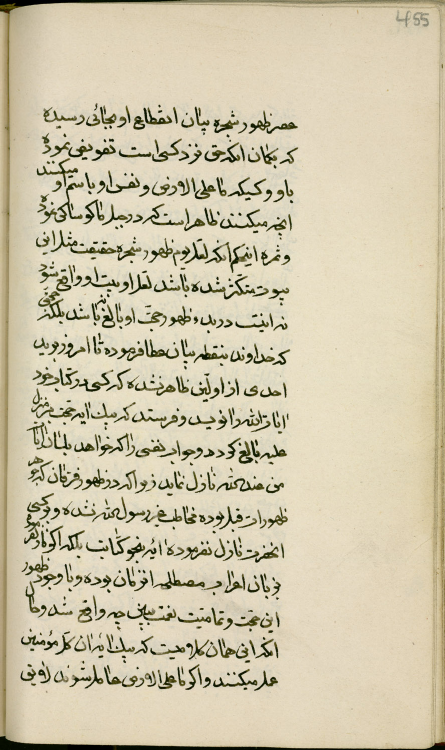 455
عصر ظهور شجره بیان انقطاع او بجائی رسیده
که بکمان انکه حق نزد کسی است تفویض نموده
باو و کسیکه ما علی الارض و نفس او باسم او میکنند
انچه میکنند ظاهر است که در جبل ماکو ساکن نموده
و ثمره اینحکم انکه لعل یوم ظهور شجره حقیقت مثل این
بیوت متکثر شده باشد لعل او بیت او واقع شود
نه اینست در بدء ظهور حجت او بالغ نباشد بلکه
که خداوند بنقطه بیان عطا فرموده تا امروز برید
احدی از اولین ظاهر نشده که کسی در کتاب خود
ایات الله را نویسد و فرستد که بیک ایه حجت بر منزل
علیه بالغ کردد و جواب نفسی را که خواهد بلسان ایات
من عند الله نازل نماید زیرا که در ظهور فرقان که
ظهورات قبل بوده مخاطب غیر رسول الله نشده و بر کسی
انحضرت نازل نفرموده ایه بنحو کتابت بلکه اکر نازل فرموده
بزبان اعراب مصطلح انزمان بوده و با وجود ظهور
این حجت و تمامیت نعمت ببین چه واقع شد و حال
انکه این همان کلامیست که بیک ایه ان کل مؤمنین
عمل میکنند و اکر ما علی الارض عامل شوند لایق